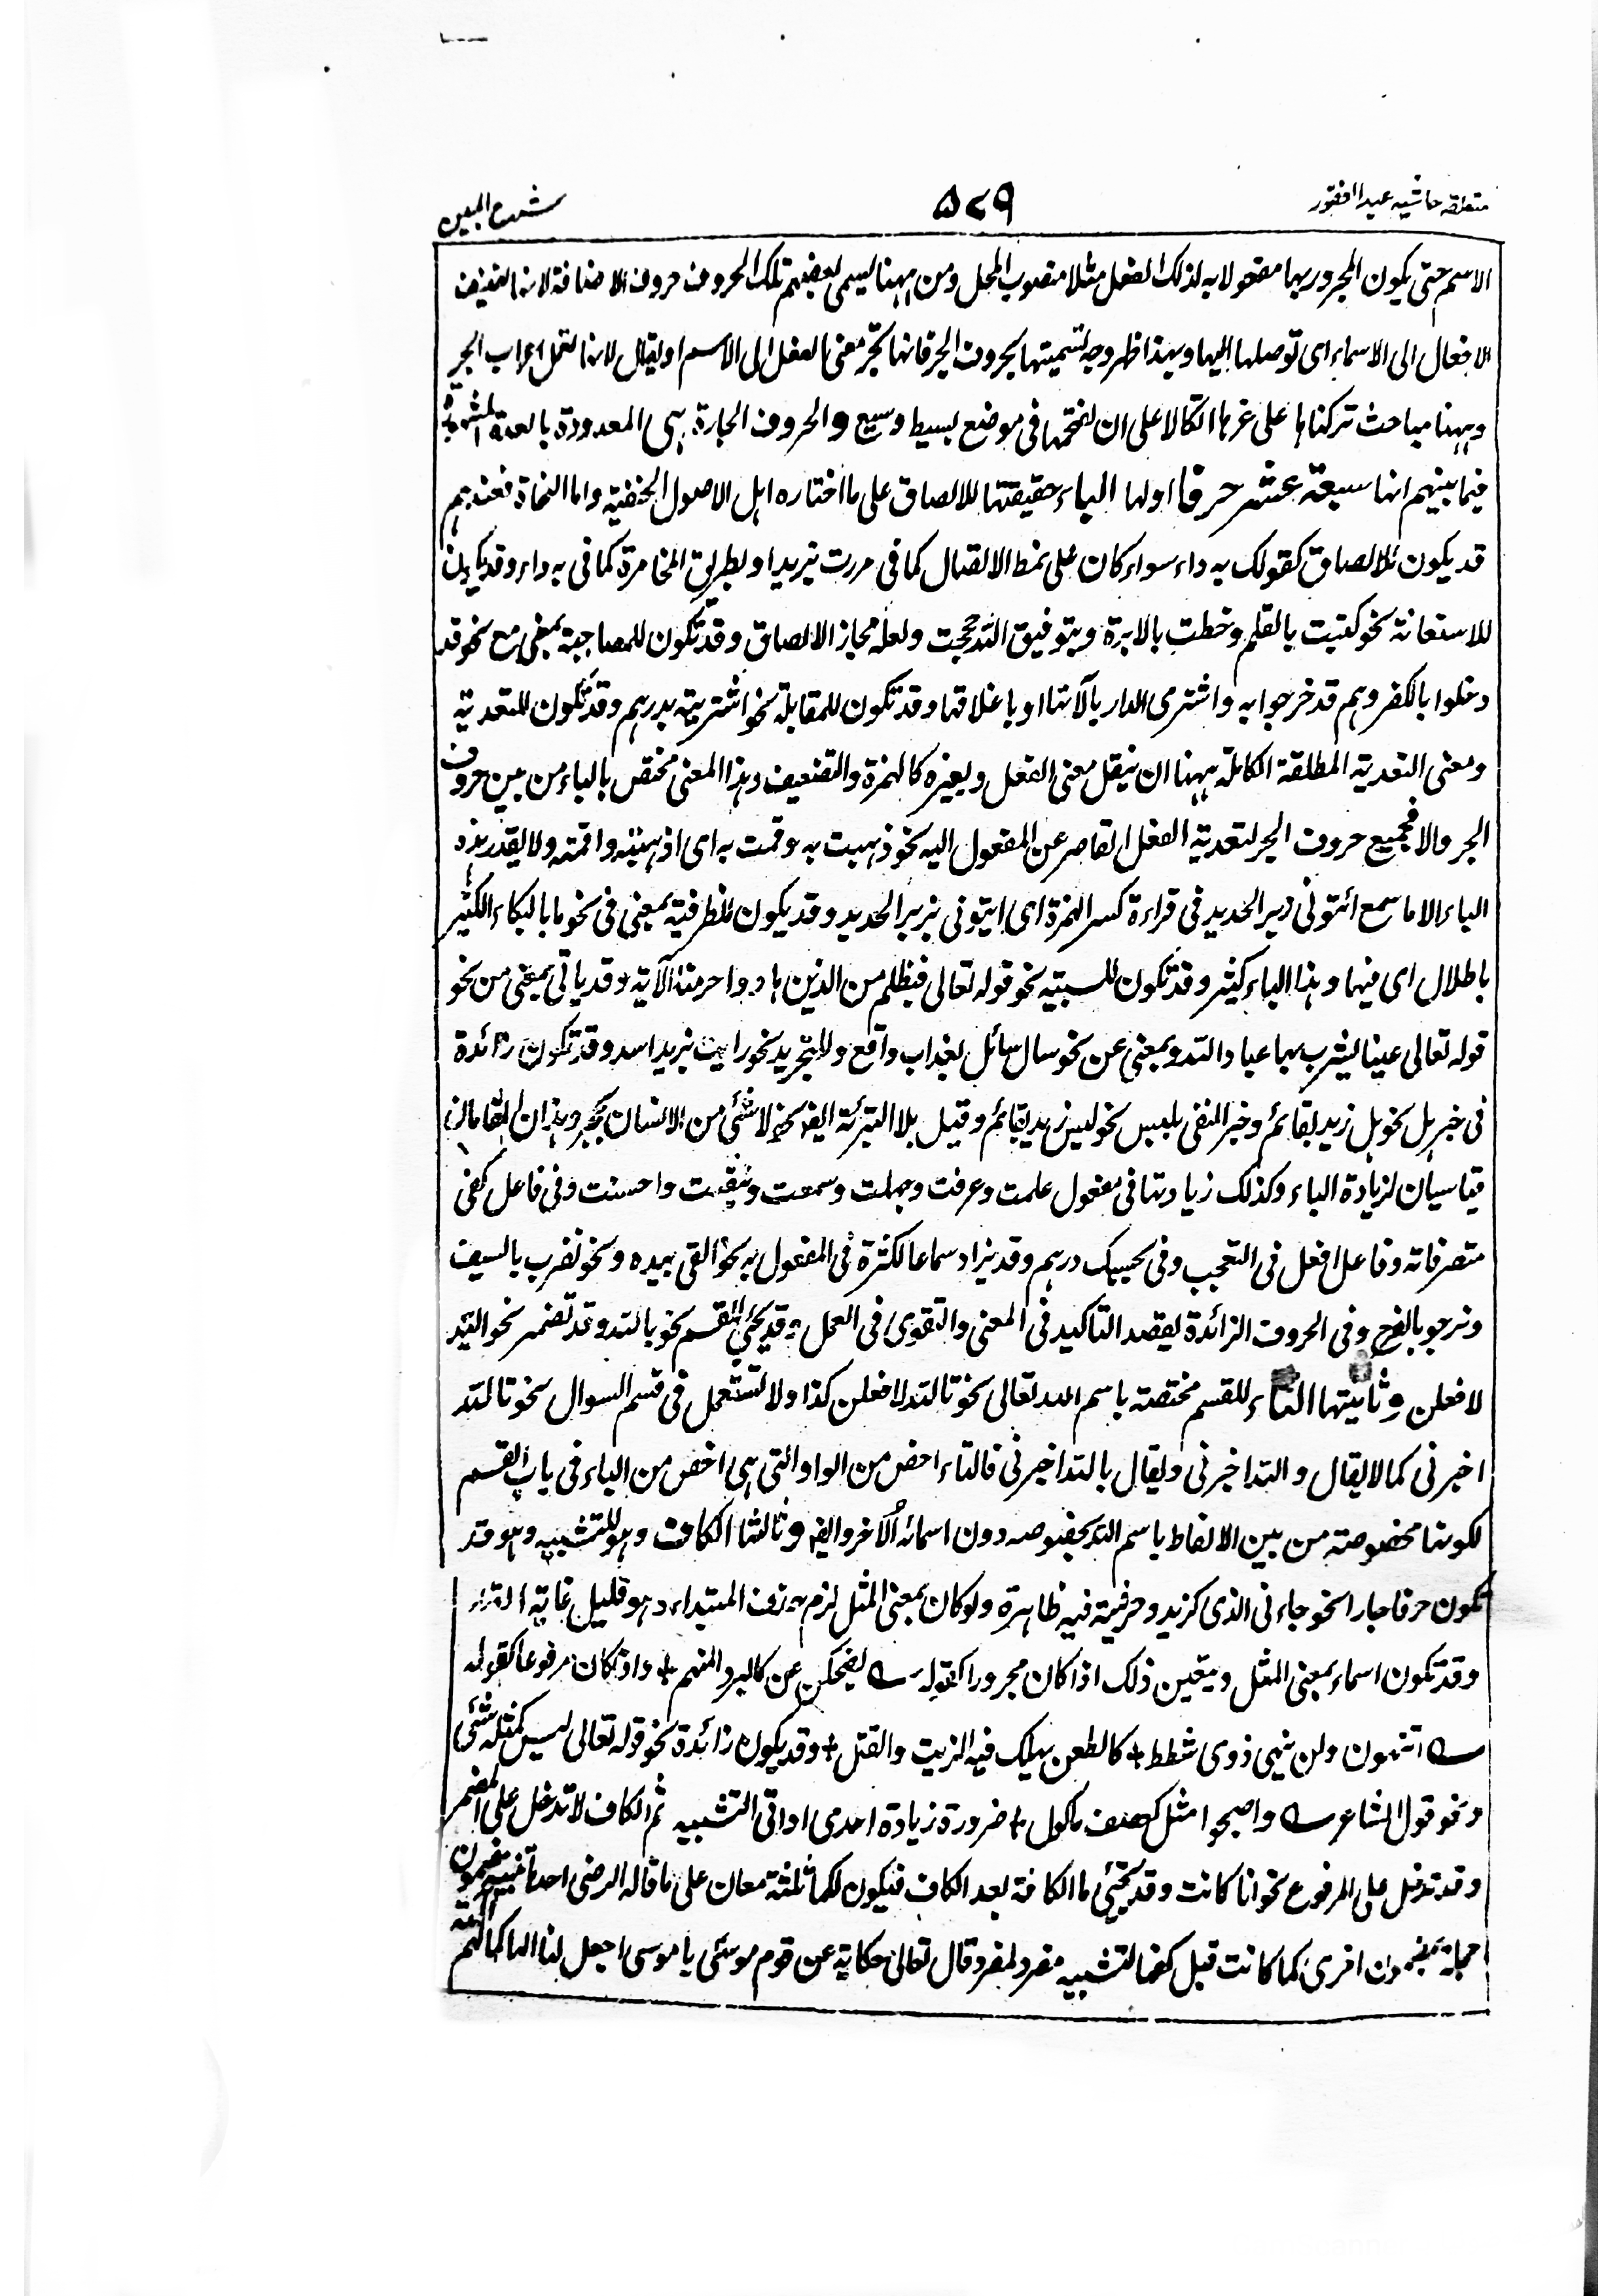 متعلقه حاشیه عبدالغفور
۵۷۹
شرح المبین
الاسم حتی یکون المجرور بها مفعولا به لذلک الفعل مثلا منصوب المحل ومن ههنا یسمی بعضهم تلک الحروف حروف الاضافة لانها تضیف
الافعال الی الاسماء ای توصلها الیها وبهذا ظهر وجه تسمیتها بحروف الجر فانها تجر معنی الفعل الی الاسم او یقال لانها تعمل اعراب الجر
وههنا مباحث ترکناها علی غرها اتکالا علی ان نختمها فی موضع بسیط وسیع والحروف الجارة هی المعدودة بالعدة المشهورة
فیما بینهم انها سبعة عشر حرفا اولها الباء حقیقتها للالصاق علی ما اختاره اهل الاصول الحنفیة واما النحاة فعندهم
قد یکون للالصاق کقولک به داء سواء کان علی نمط الاتصال کما فی مررت بزید او بطریق المخامرة کما فی به داء وقد یکون
للاستعانة نحو کتبت بالقلم وخطت بالابرة وبتوفیق الله حججت ولعله مجاز الالصاق وقد تکون للمصاحبة بمعنی مع نحو قد
دخلوا بالکفر وهم قد خرجوا به واشتری الدار بآلاتها او باغلاقها وقد تکون للمقابلة نحو اشتریته بدرهم وقد تکون للتعدیة
ومعنی التعدیة المطلقة الکاملة ههنا ان ینقل معنی الفعل ویغیره کالهمزة والتضعیف وهذا المعنی مختص بالباء من بین حروف
الجر والا فجمیع حروف الجر لتعدیة الفعل القاصر عن المفعول الیه نحو ذهبت به وقمت به ای اذهبته واقمته ولا یقدر هذه
الباء الا ما سمع ائتونی زبر الحدید فی قراءة کسر الهمزة ای ایتونی بزبر الحدید وقد یکون للظرفیة بمعنی فی نحو ما بالبکاء الکثیر
باطلال ای فیها وهذا الباء کثیر وقد تکون للسببیة نحو قوله تعالی فبظلم من الذین هادوا حرمنا الآیة وقد یاتی بمعنی من نحو
قوله تعالی عینا یشرب بها عباد الله وبمعنی عن نحو سال سائل بعذاب واقع وللتجرید نحو رایت بزید اسد وقد تکون زائدة
فی خبر هل نحو هل زید بقائم وخبر النفی بلیس نحو لیس زید بقائم وقیل بلا التبرئة ایضا نحو لا شئ من الانسان بحجر وهذان المقامان
قیاسیان لزیادة الباء وکذلک زیادتها فی مفعول علمت وعرفت وجهلت وسمعت وتیقنت واحسنت وفی فاعل کفی
متصرفاته وفاعل افعل فی التعجب وفی بحسبک درهم وقد یزاد سماعا لکثرة فی المفعول به نحو القی بیده ونحو نضرب بالسیف
ونرجو بالفرج وفی الحروف الزائدة یقصد التاکید فی المعنی والتقوی فی العمل وقد یجئ للقسم نحو بالله وقد تضمر نحو الله
لافعلن وثانیتها التاء للقسم مختصة باسم الله تعالی نحو تالله لافعلن کذا ولا تستعمل فی قسم السوال نحو تالله
اخبرنی کما لا یقال والله اخبرنی ویقال بالله اخبرنی فالتاء اخص من الواو التی هی اخص من الباء فی باب القسم
لکونها مخصوصة من بین الالفاظ باسم الله بخصوصه دون اسمائه الاخر وایضا وثالثها الکاف وهو للتشبیه وهو قد
تکون حرفا جارا نحو جاءنی الذی کزید وحرفیته فیه ظاهرة ولو کان بمعنی المثل لزم حذف المبتداء وهو قلیل غایة القلة
وقد تکون اسماء بمعنی المثل ویتعین ذلک اذا کان مجرورا کقوله ؎ یضحکن عن کالبرد المنهم + واذ کان مرفوعا کقوله
؎ اتنتهون ولن ینهی ذوی شطط + کالطعن یهلک فیه الزیت والفتل + وقد یکون زائدة نحو قوله تعالی لیس کمثله شئ
ونحو قول الشاعر ؎ واصبحوا مثل کعصف ماکول + ضرورة زیادة احدی اداتی التشبیه ثم الکاف لا تدخل علی المضمر
وقد تدخل علی المرفوع نحو انا کانت وقد یجئ ما الکافة بعد الکاف فیکون لکما ثلثة معان علی ما قاله الرضی احدها تشبیه مضمون
جملة بمضمون اخری کما کانت قبل کفها لتشبیه مفرد لمفرد قال تعالی حکایة عن قوم موسی یا موسی اجعل لنا الها کما لهم
آلهة